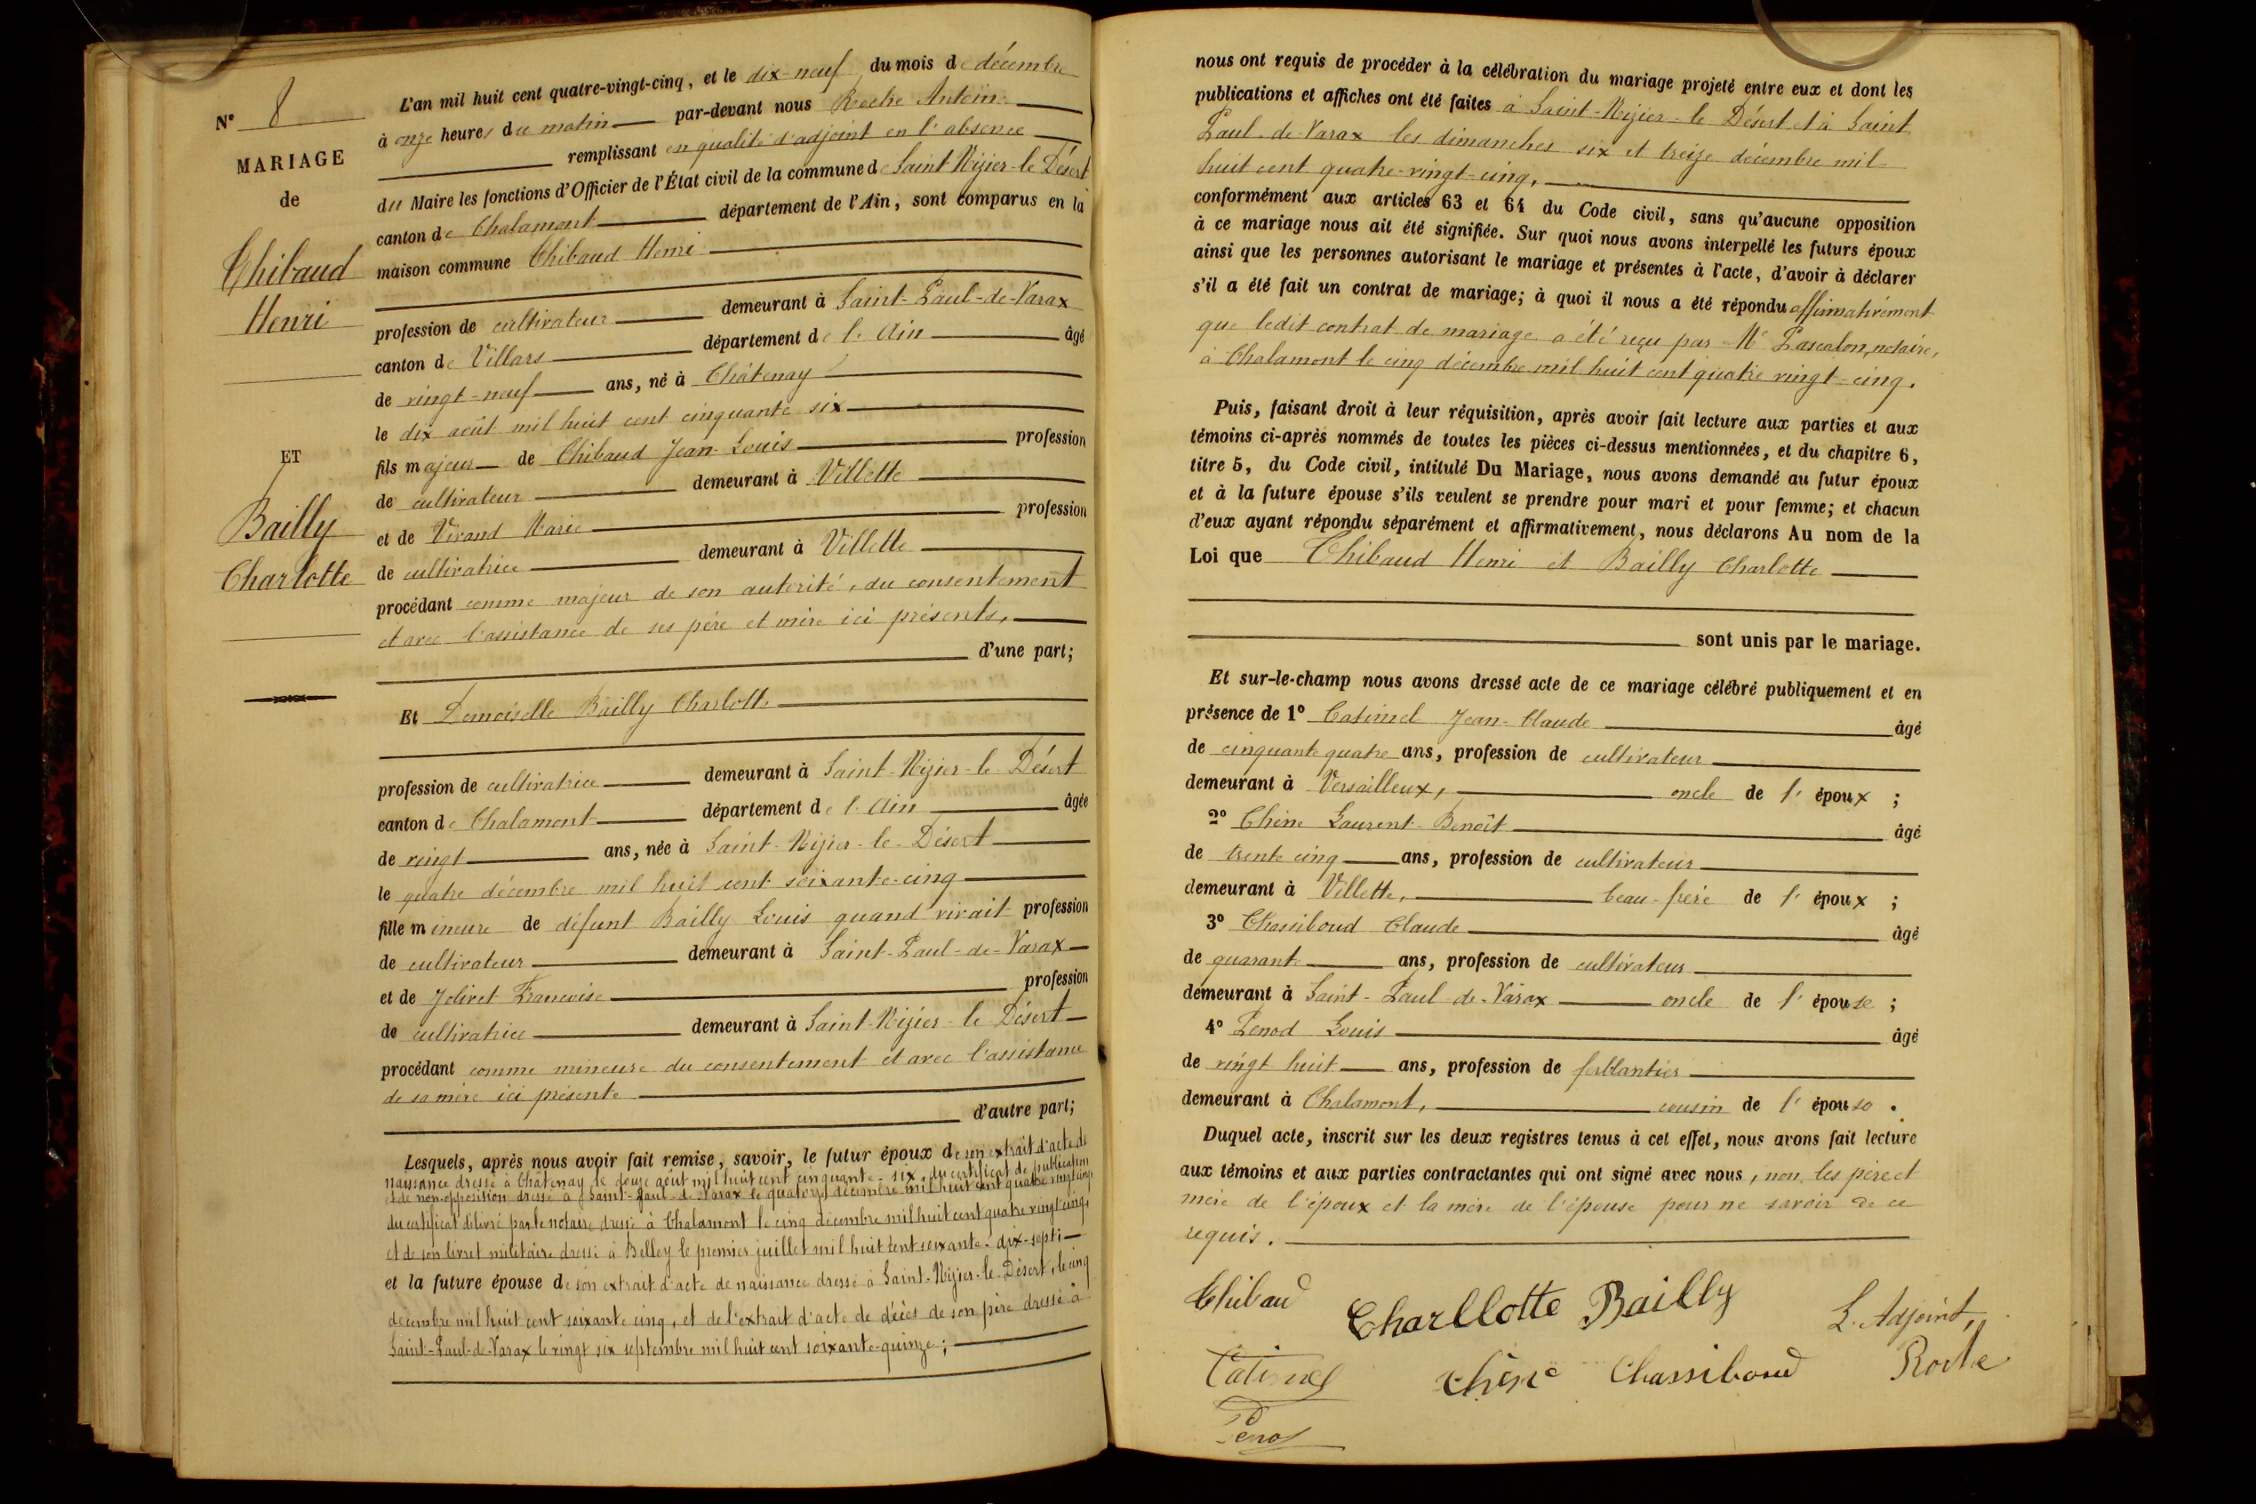 N° 8
MARIAGE
de
Thibaud
Henri
ET
Bailly
Charlotte
L'an mil huit cent quatre-vingt-cinq, et le dix-neuf du mois de décembre
à onze heures du matin par-devant nous Roche Antoine
remplissant en qualité d'adjoint en l'absence
du Maire les fonctions d'Officier de l'État civil de la commune de Saint Nizier-le Désert
canton de Chalamont département de l'Ain, sont comparus en la
maison commune Thibaud Henri
profession de cultivateur demeurant à Saint-Paul-de-Varax
canton de Villars département de l'Ain âgé
de vingt-neuf ans, né à Châtenay
le dix août mil huit cent cinquante six
fils majeur de Thibaud Jean-Louis profession
de cultivateur demeurant à Villette
et de Virand Marie profession
de cultivatrice demeurant à Villette
procédant comme majeur de son autorité, du consentement
et avec l'assistance de ses père et mère ici présents,
d'une part;
Et Demoiselle Bailly Charlotte
profession de cultivatrice demeurant à Saint-Nizier-le-Désert
canton de Chalamont département de l'Ain âgée
de vingt ans, née à Saint-Nizier-le-Désert
le quatre décembre mil huit cent soixante-cinq
fille mineure de défunt Bailly Louis quand vivait profession
de cultivateur demeurant à Saint-Paul-de-Varax
et de Jolivet Françoise profession
de cultivatrice demeurant à Saint-Nizier-le Désert
procédant comme mineure du consentement et avec l'assistance
de sa mère ici présente
d'autre part;
Lesquels, après nous avoir fait remise, savoir, le futur époux de son extrait d'acte de
naissance dressé à Châtenay le douze août mil huit cent cinquante-six, du certificat de publication
et de non-opposition dressé à Saint-Paul-de-Varax le quatorze décembre mil huit cent quatre vingt cinq
du certificat délivré par le notaire dressé à Chalamont le cinq décembre mil huit cent quatre vingt cinq,
et de son livret militaire dressé à Belley le premier juillet mil huit cent soixante-dix-sept;
et la future épouse de son extrait d'acte de naissance dressé à Saint-Nizier-le-Désert, le cinq
décembre mil huit cent soixante cinq, et de l'extrait d'acte de décès de son père dressé à
Saint-Paul-de-Varax le vingt six septembre mil huit cent soixante-quinze;
nous ont requis de procéder à la célébration du mariage projeté entre eux et dont les
publications et affiches ont été faites à Saint-Nizier-le Désert et à Saint
Paul-de-Varax les dimanches six et treize décembre mil
huit cent quatre-vingt-cinq,
conformément aux articles 63 et 64 du Code civil, sans qu'aucune opposition
à ce mariage nous ait été signifiée. Sur quoi nous avons interpellé les futurs époux
ainsi que les personnes autorisant le mariage et présentes à l'acte, d'avoir à déclarer
s'il a été fait un contrat de mariage; à quoi il nous a été répondu affirmativement
que ledit contrat de mariage a été reçu par Me Pascalon, notaire,
à Chalamont le cinq décembre mil huit cent quatre vingt-cinq.
Puis, faisant droit à leur réquisition, après avoir fait lecture aux parties et aux
témoins ci-après nommés de toutes les pièces ci-dessus mentionnées, et du chapitre 6,
titre 5, du Code civil, intitulé Du Mariage, nous avons demandé au futur époux
et à la future épouse s'ils veulent se prendre pour mari et pour femme; et chacun
d'eux ayant répondu séparément et affirmativement, nous déclarons Au nom de la
Loi que Thibaud Henri et Bailly Charlotte
sont unis par le mariage.
Et sur-le-champ nous avons dressé acte de ce mariage célébré publiquement et en
présence de 1° Catimel Jean-Claude âgé
de cinquante quatre ans, profession de cultivateur
demeurant à Versailleux, oncle de l'époux ;
2° Chêne Laurent-Benoît âgé
de trente cinq ans, profession de cultivateur
demeurant à Villette, beau-frère de l'époux ;
3° Chassiboud Claude âgé
de quarante ans, profession de cultivateur
demeurant à Saint-Paul-de-Varax oncle de l'épouse ;
4° Penod Louis âgé
de vingt huit ans, profession de ferblantier
demeurant à Chalamont, cousin de l'épouse .
Duquel acte, inscrit sur les deux registres tenus à cet effet, nous avons fait lecture
aux témoins et aux parties contractantes qui ont signé avec nous, non les père et
mère de l'époux et la mère de l'épouse pour ne savoir de ce
requis.
Thibaud Charllotte Bailly L. Adjoint,
Catimel Chêne Chassiboud Roche
Penod